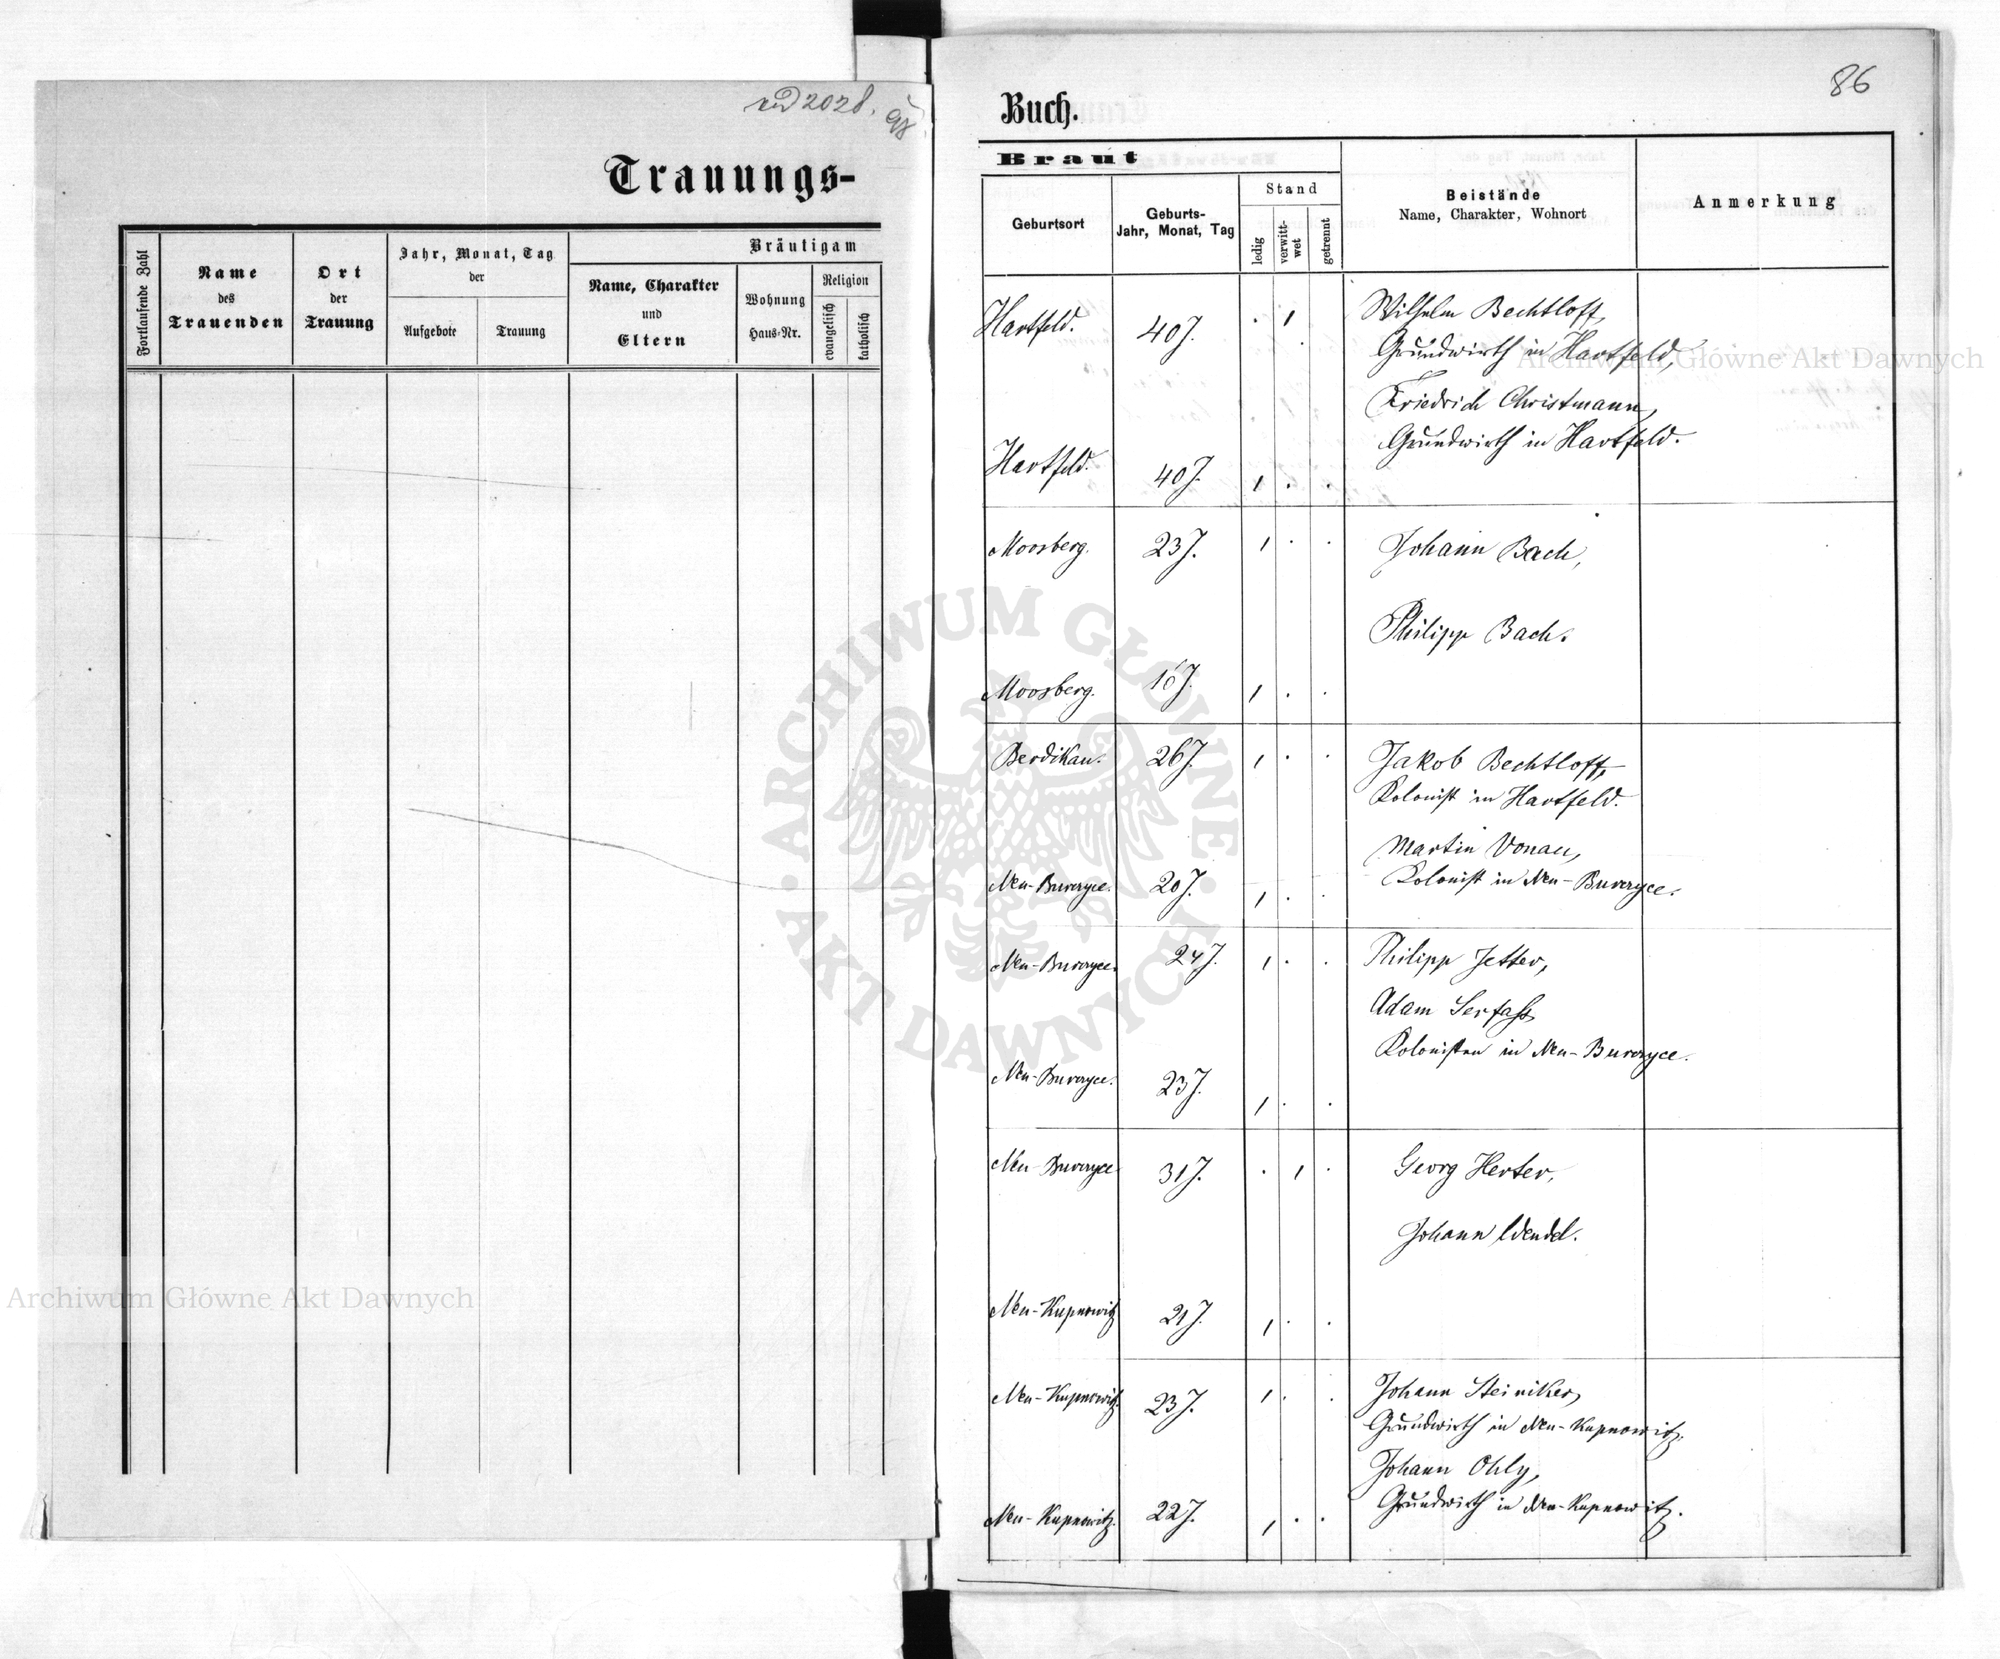 2028.
Trauungs-
Fortlaufende Zahl
Name
des
Trauenden
Ort
der
Trauung
Jahr, Monat, Tag
der
Aufgebote
Trauung
Bräutigam
Name, Charakter
und
Eltern
Wohnung
Haus-Nr.
Religion
evangelisch
katholisch
86
Buch.
Braut
Geburtsort
Geburts-
Jahr, Monat, Tag
Stand
ledig
verwitt-
wet
getrennt
Beistände
Name, Charakter, Wohnort
Anmerkung
Hartfeld. 40 J. Wilhelm Bechtloff,
Grundwirth in Hartfeld,
Friedrich Christmann,
Grundwirth in Hartfeld.
Hartfeld. 40 J.
Moosberg. 23 J. Johann Bach,
Philipp Bach.
Moosberg. J.
Berdikau. 26 J. Jakob Bechtloff,
Kolonist in Hartfeld.
Martin Vonau,
Kolonist in Neu-Burczyce.
Neu-Burczyce. 20 J.
Neu-Burczyce. 24 J. Philipp Jetter,
Adam Serfass
Kolonisten in Neu-Burczyce.
Neu-Burczyce. 23 J.
Neu-Burczyce 31 J. Georg Herter,
Johann Wendel.
Neu-Kupnowitz 21 J.
Neu-Kupnowitz. 23 J. Johann Steiniker,
Grundwirth in Neu-Kupnowitz.
Johann Ohly,
Grundwirth in Neu-Kupnowitz.
Neu-Kupnowitz. 22 J.
Archiwum Główne Akt Dawnych
ARCHIWUM GŁÓWNE · AKT DAWNYCH ·
Archiwum Główne Akt Dawnych